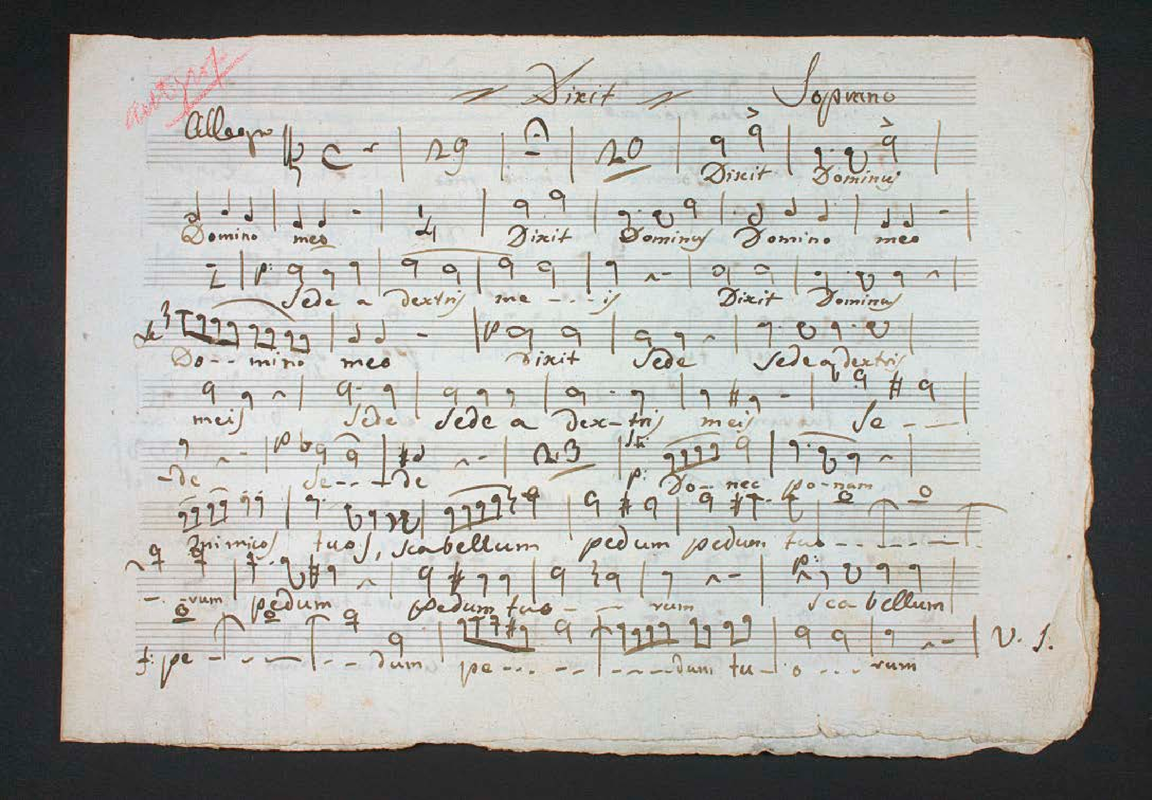 Dixit Soprano
Allegro C 29 20
Dixit Dominus
Domino meo 4 Dixit Dominus Domino meo
2 p: Sede a dextris me - - - is Dixit Dominus
3 Do - - mino meo p Dixit Sede Sede a dextris
meis Sede Sede a dex - tris meis Se - - -
- de p Se - - - de 23 p: Do - - nec po - nam
inimicos tuos, scabellum pedum pedum tuo - - - - - -
- - rum pedum pedum tuo - - rum p: scabellum
f: pe - - - - - - dum pe - - - - - - - - - dum tu - o - - - rum V. S.